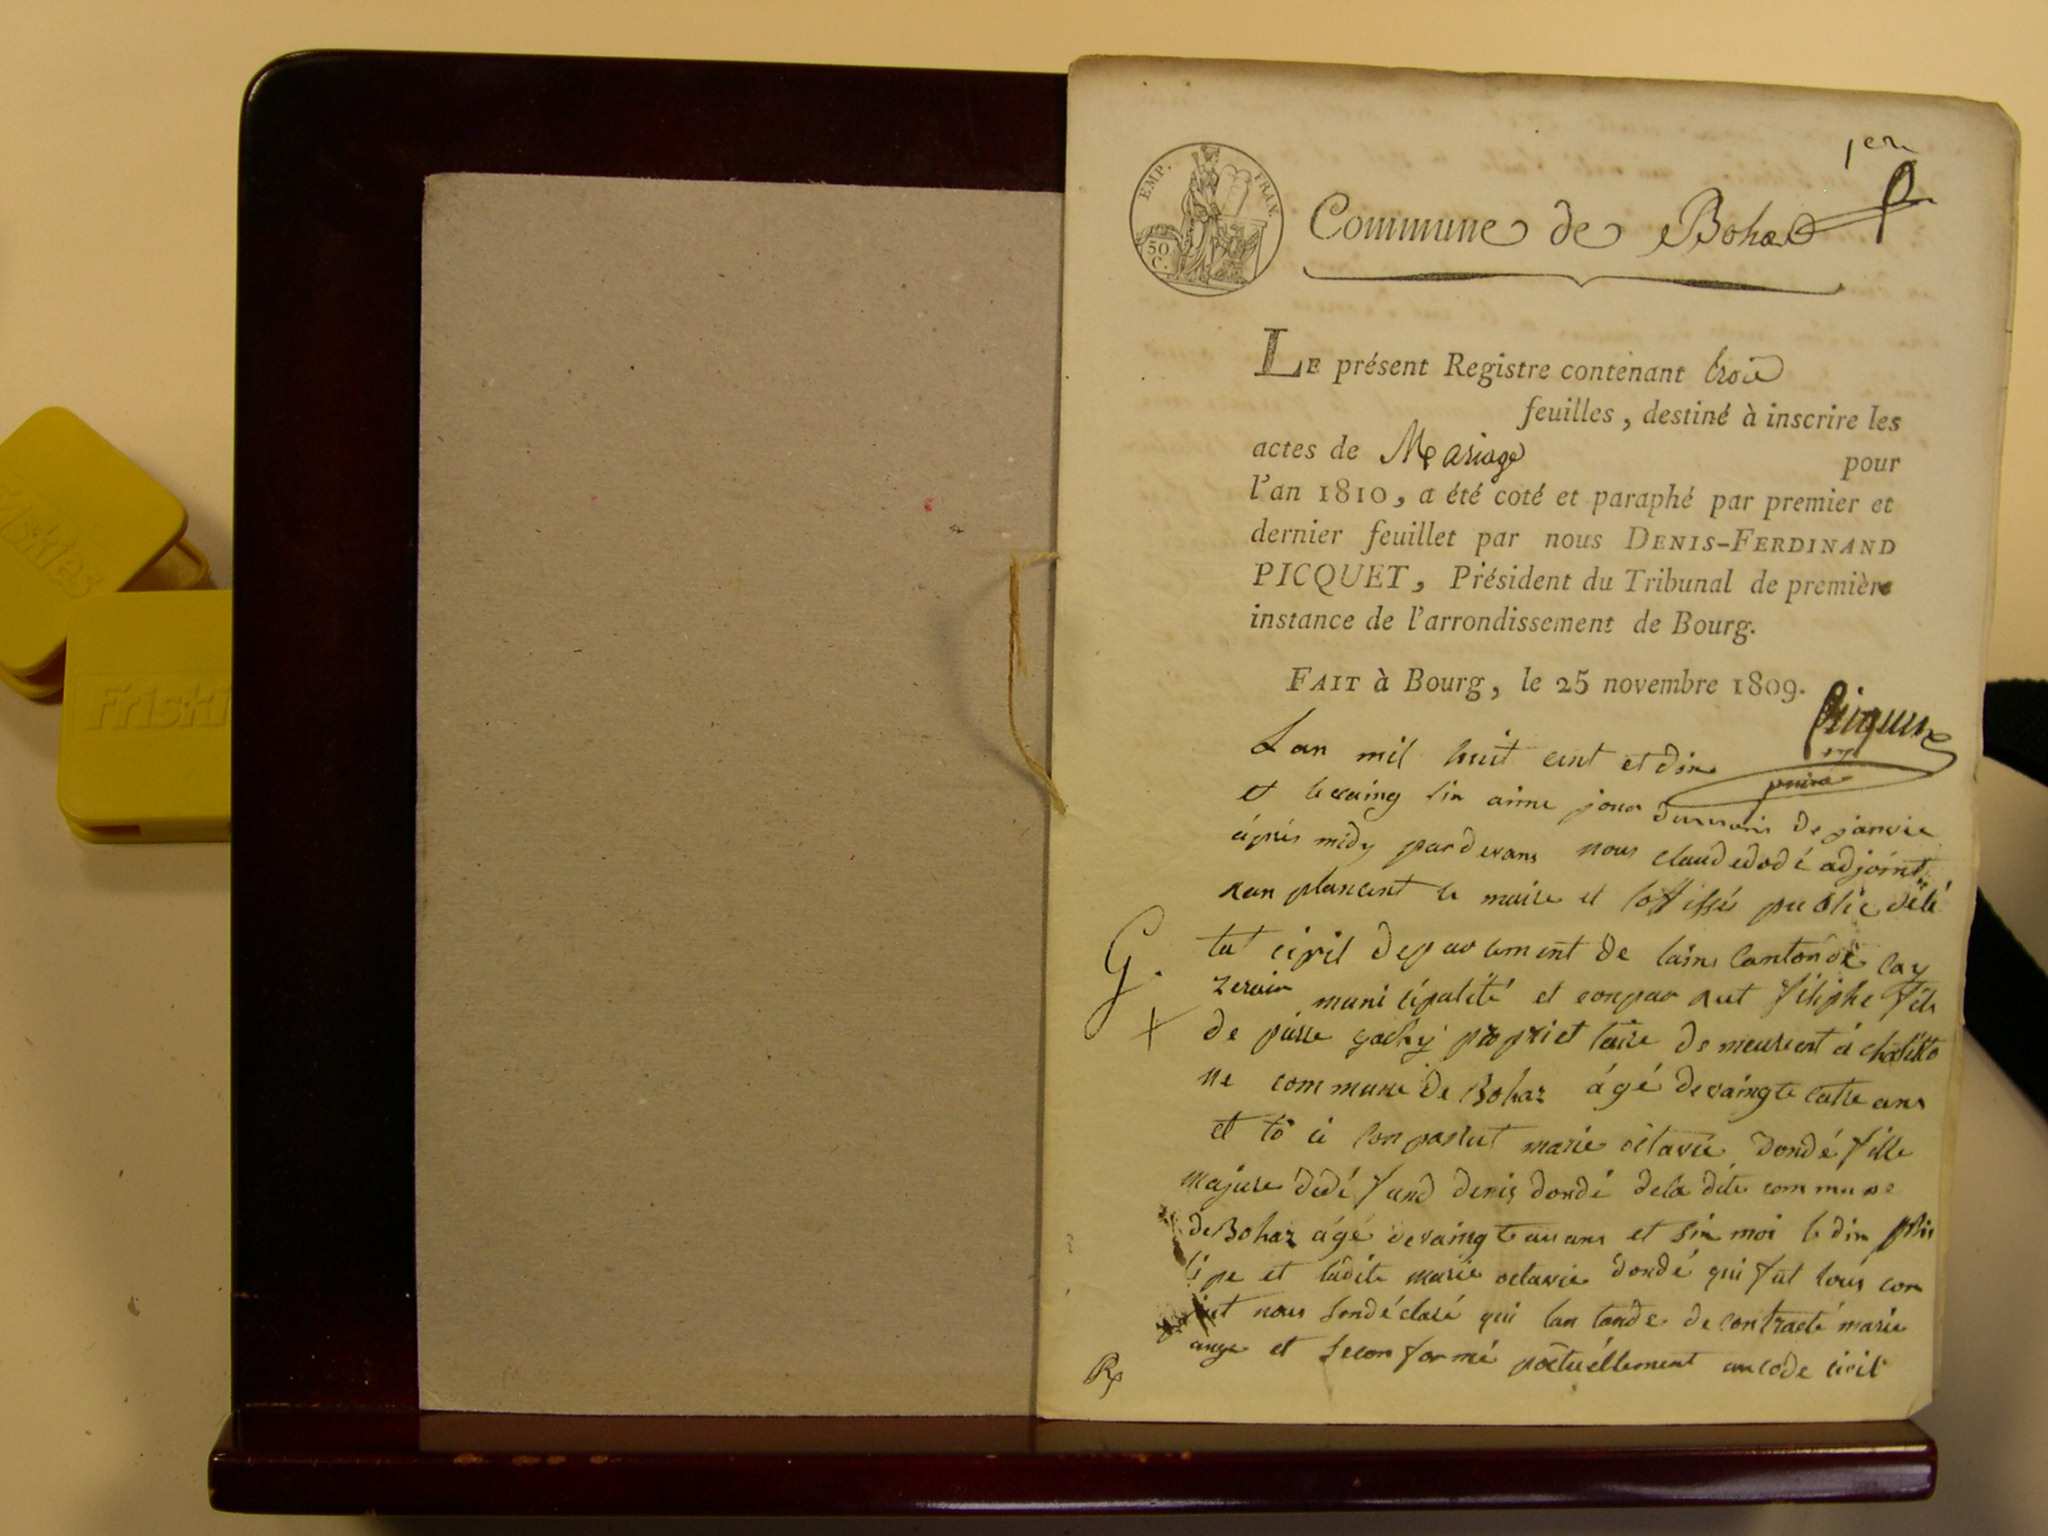 1er
EMP. FRAN.
50 C.
Commune de Bohas
LE présent Registre contenant trois
feuilles, destiné à inscrire les
actes de Mariage pour
l'an 1810, a été coté et paraphé par premier et
dernier feuillet par nous DENIS-FERDINAND
PICQUET, Président du Tribunal de première
instance de l'arrondissement de Bourg.
FAIT à Bourg, le 25 novembre 1809.
Picquet
Lan mil huit cent et dix
et le vaing sin aime jour dumois de janvie
áprés midy pardevans nous claude dodé adjoint
ran plancent le maire et loffissés public délé
tat cipil departement de lain canton de cay
zeriar municipalité et conparut filiphe fils
G.
de piarre gachy propriettaire demeurent á
ne commune de Bohaz ágé de vaingte catre ans
et to ci conparut marie octavie dondé fille
majure dédéfund denis dondé dela dite commune
de Bohaz ágé devaingt ans et sin moi le din phi
lipe et ladite marie octavie dondé qui fut tous con
jut nous sondéclaré qui lan tande de contracté marie
ange et seconformé poctuéllement aucode civil
Friskies
Friski